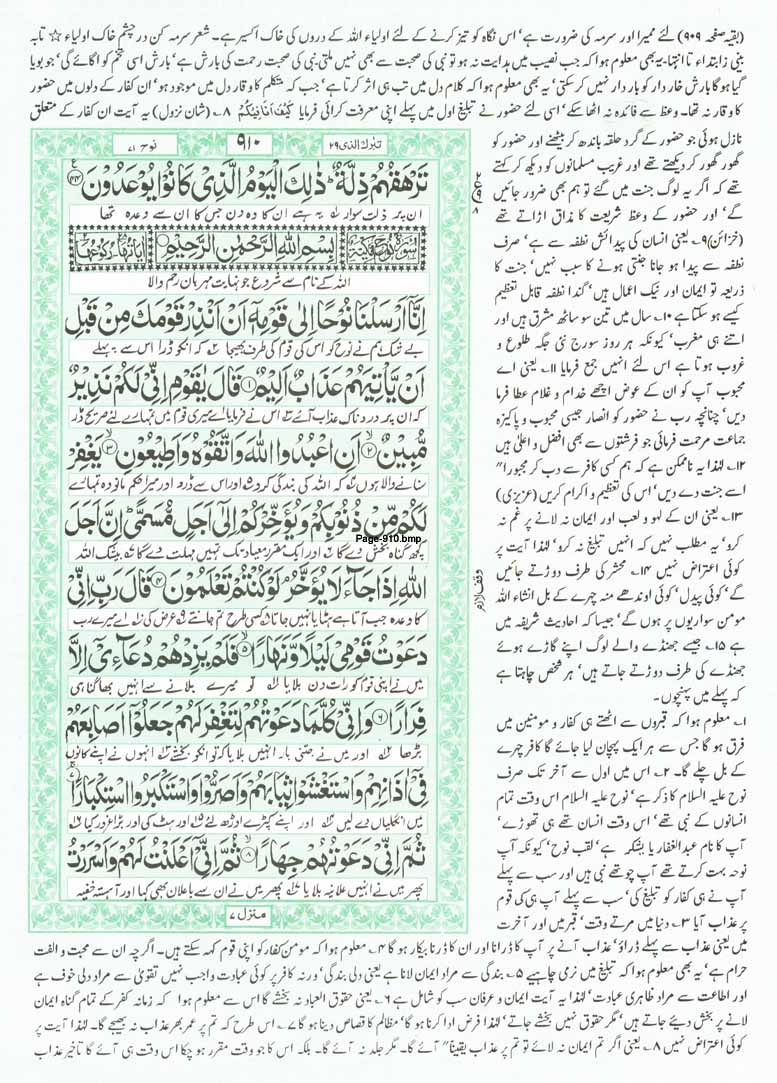 (بقیہ صفحہ ۹۰۹) لئے ممیرا اور سرمہ کی ضرورت ہے' اس نگاہ کو تیز کرنے کے لئے اولیاء اللہ کے دروں کی خاک اکسیر ہے۔ شعر سرمہ کن در چشم خاک اولیاء ☆ تابہ
بینی زابتداء تا انتہا۔ یہ بھی معلوم ہوا کہ جب نصیب میں ہدایت نہ ہو تو نبی کی صحبت سے بھی نہیں ملتی۔ نبی کی صحبت رحمت کی بارش ہے' بارش اسی تخم کو اگائے گی' جو بویا
گیا ہو گا بارش خار دار کو بار دار نہیں کر سکتی' یہ بھی معلوم ہوا کہ کلام دل میں تب ہی اثر کرتا ہے' جب کہ متکلم کا وقار دل میں موجود ہو' ان کفار کے دلوں میں حضور
کا وقار نہ تھا۔ وعظ سے فائدہ نہ اٹھا سکے' اسی لئے حضور نے تبلیغ اول میں پہلے اپنی معرفت کرائی فرمایا کَیْفَ اَنَا فِیْکُمْ ۸؎ (شان نزول) یہ آیت ان کفار کے متعلق
نازل ہوئی جو حضور کے گرد حلقہ باندھ کر بیٹھتے اور حضور کو
گھور گھور کر دیکھتے تھے اور غریب مسلمانوں کو دیکھ کر کہتے
تھے کہ اگر یہ لوگ جنت میں گئے تو ہم بھی ضرور جائیں
گے' اور حضور کے وعظ شریعت کا مذاق اڑاتے تھے
(خزائن) ۹؎ یعنی انسان کی پیدائش نطفہ سے ہے' صرف
نطفہ سے پیدا ہو جانا جنتی ہونے کا سبب نہیں' جنت کا
ذریعہ تو ایمان اور نیک اعمال ہیں' گندا نطفہ قابل تعظیم
کیسے ہو سکتا ہے ۱۰؎ سال میں تین سو ساٹھ مشرق ہیں اور
اتنے ہی مغرب' کیونکہ ہر روز سورج نئی جگہ طلوع و
غروب ہوتا ہے اس لئے انہیں جمع فرمایا ۱۱؎ یعنی اے
محبوب آپ کو ان کے عوض اچھے خدام و غلام عطا فرما
دیں' چنانچہ رب نے حضور کو انصار جیسی محبوب و پاکیزہ
جماعت مرحمت فرمائی جو فرشتوں سے بھی افضل و اعلیٰ ہیں
۱۲؎ لہٰذا یہ ناممکن ہے کہ ہم کسی کافر سے دب کر مجبورا"
اسے جنت دے دیں' اس کی تعظیم و اکرام کریں (عزیزی)
۱۳؎ یعنی ان کے لہو و لعب اور ایمان نہ لانے پر غم نہ
کرو' یہ مطلب نہیں کہ انہیں تبلیغ نہ کرو' لہٰذا آیت پر
کوئی اعتراض نہیں ۱۴؎ محشر کی طرف دوڑتے جائیں
گے' کوئی پیدل' کوئی اوندھے منہ چہرے کے بل انشاء اللہ
مومن سواریوں پر ہوں گے' جیسا کہ احادیث شریفہ میں
ہے ۱۵؎ جیسے جھنڈے والے لوگ اپنے گاڑے ہوئے
جھنڈے کی طرف دوڑتے جاتے ہیں' ہر شخص چاہتا ہے
کہ پہلے میں پہنچوں۔
۱؎ معلوم ہوا کہ قبروں سے اٹھتے ہی کفار و مومنین میں
فرق ہو گا جس سے ہر ایک پہچان لیا جائے گا کافر چہرے
کے بل چلے گا۔ ۲؎ اس میں اول سے آخر تک صرف
نوح علیہ السلام کا ذکر ہے' نوح علیہ السلام اس وقت تمام
انسانوں کے نبی تھے' اس وقت انسان تھے ہی تھوڑے'
آپ کا نام عبدالغفار یا یشکر ہے' لقب نوح' کیونکہ آپ
نوحہ بہت کرتے تھے آپ چوتھے نبی ہیں اور سب سے پہلے
آپ نے ہی کفار کو تبلیغ کی' سب سے پہلے آپ ہی کی قوم
پر عذاب آیا ۳؎ دنیا میں مرتے وقت' قبر میں اور آخرت
میں یعنی عذاب سے پہلے ڈراؤ' عذاب آنے پر آپ کا ڈرانا اور ان کا ڈرنا بیکار ہو گا ۴؎ معلوم ہوا کہ مومن کفار کو اپنی قوم کہہ سکتے ہیں۔ اگرچہ ان سے محبت و الفت
حرام ہے' یہ بھی معلوم ہوا کہ تبلیغ میں نرمی چاہیے ۵؎ بندگی سے مراد ایمان لانا ہے یعنی دلی بندگی' ورنہ کافر پر کوئی عبادت واجب نہیں تقویٰ سے مراد دلی خوف ہے
اور اطاعت سے مراد ظاہری عبادت' لہٰذا یہ آیت ایمان و عرفان سب کو شامل ہے ۶؎ یعنی حقوق العباد نہ بخشے گا اس سے معلوم ہوا کہ زمانہ کفر کے تمام گناہ ایمان
لانے پر بخش دیئے جاتے ہیں' مگر حقوق نہیں بخشے جاتے' لہٰذا قرض ادا کرنا ہو گا' مظالم کا قصاص دینا ہو گا ۷؎ اس طرح کہ تم پر عمر بھر عذاب نہ بھیجے گا۔ لہٰذا آیت پر
کوئی اعتراض نہیں ۸؎ یعنی اگر تم ایمان نہ لائے تو تم پر عذاب یقیناً" آئے گا۔ مگر جلد نہ آئے گا۔ بلکہ اس کا جو وقت مقرر ہو چکا اس وقت ہی آئے گا تاخیر عذاب
تبٰرک الذی ۲۹
۹۱۰
نوح ۷۱
تَرْهَقُهُمْ ذِلَّةٌ ؕ ذٰلِكَ الْيَوْمُ الَّذِىْ كَانُوْا يُوْعَدُوْنَ ﴿۴۴﴾
ان پر ذلت سوار یہ ہے ان کا وہ دن جس کا ان سے وعدہ تھا
سُوْرَةُ نُوْحٍ مَكِّيَّةٌ
بِسْمِ اللّٰهِ الرَّحْمٰنِ الرَّحِيْمِ
اللہ کے نام سے شروع جو نہایت مہربان رحم والا
اِنَّاۤ اَرْسَلْنَا نُوْحًا اِلٰى قَوْمِهٖۤ اَنْ اَنْذِرْ قَوْمَكَ مِنْ قَبْلِ
بے شک ہم نے نوح کو اس کی قوم کی طرف بھیجا کہ انکو ڈرا اس سے پہلے
اَنْ يَّاْتِيَهُمْ عَذَابٌ اَلِيْمٌ ﴿۱﴾ قَالَ يٰقَوْمِ اِنِّىْ لَكُمْ نَذِيْرٌ
کہ ان پر درد ناک عذاب آئے اس نے فرمایا اے میری قوم میں تمہارے لئے صریح ڈر
مُّبِيْنٌ ﴿۲﴾ اَنِ اعْبُدُوا اللّٰهَ وَاتَّقُوْهُ وَاَطِيْعُوْنِ ﴿۳﴾ يَغْفِرْ
سنانے والا ہوں کہ اللہ کی بندگی کرو اور اس سے ڈرو اور میرا حکم مانو وہ تمہارے
لَكُمْ مِّنْ ذُنُوْبِكُمْ وَيُؤَخِّرْكُمْ اِلٰۤى اَجَلٍ مُّسَمًّى ؕ اِنَّ اَجَلَ
کچھ گناہ بخش دے گا اور ایک مقرر میعاد تک تمہیں مہلت دے گا بیشک اللہ
Page-910.bmp
اللّٰهِ اِذَا جَآءَ لَا يُؤَخَّرُ ۘ لَوْ كُنْتُمْ تَعْلَمُوْنَ ﴿۴﴾ قَالَ رَبِّ اِنِّىْ
کا وعدہ جب آتا ہے ہٹایا نہیں جاتا کسی طرح تم جانتے عرض کی اے میرے رب
دَعَوْتُ قَوْمِىْ لَيْلًا وَّنَهَارًا ﴿۵﴾ فَلَمْ يَزِدْهُمْ دُعَآءِىْۤ اِلَّا
میں نے اپنی قوم کو رات دن بلایا تو میرے بلانے سے انہیں بھاگنا ہی
فِرَارًا ﴿۶﴾ وَاِنِّىْ كُلَّمَا دَعَوْتُهُمْ لِتَغْفِرَ لَهُمْ جَعَلُوْۤا اَصَابِعَهُمْ
بڑھا اور میں نے جتنی بار انہیں بلایا کہ تو انکو بخشے انہوں نے اپنے کانوں
فِىْۤ اٰذَانِهِمْ وَاسْتَغْشَوْا ثِيَابَهُمْ وَاَصَرُّوْا وَاسْتَكْبَرُوا اسْتِكْبَارًا ﴿۷﴾
میں انگلیاں دے لیں اور اپنے کپڑے اوڑھ لئے اور ہٹ کی اور بڑا غرور کیا
ثُمَّ اِنِّىْ دَعَوْتُهُمْ جِهَارًا ﴿۸﴾ ثُمَّ اِنِّىْۤ اَعْلَنْتُ لَهُمْ وَاَسْرَرْتُ
پھر میں نے انہیں علانیہ بلایا پھر میں نے ان سے باعلان بھی کہا اور آہستہ خفیہ
منزل ۷
وقف لازم